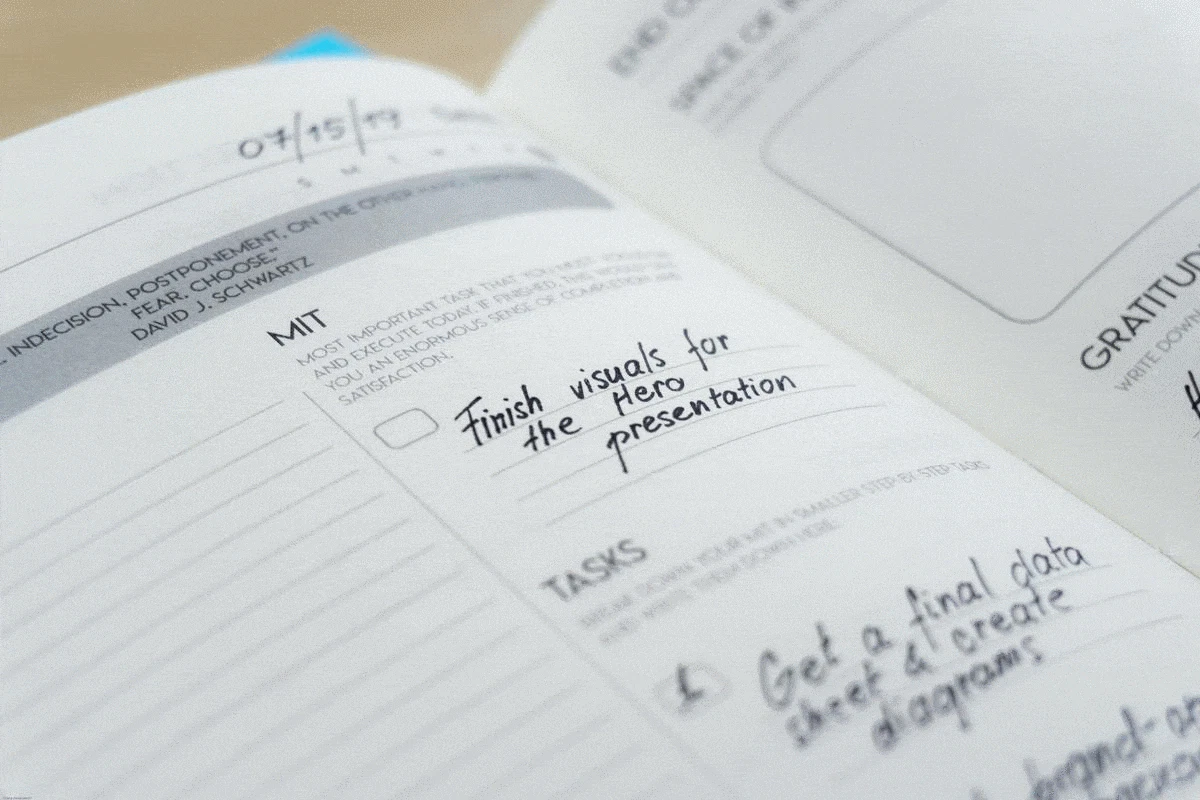 07/15/19
S M T W T
INDECISION, POSTPONEMENT, ON THE OTHER
FEAR. CHOOSE."
DAVID J. SCHWARTZ
MIT
MOST IMPORTANT TASK THAT YOU MUST
AND EXECUTE TODAY. IF FINISHED, THIS WOULD
YOU AN ENORMOUS SENSE OF COMPLETION AND
SATISFACTION.
Finish visuals for
the Hero
presentation
TASKS
BREAK DOWN YOUR MIT IN SMALLER STEP-BY-STEP TASKS
AND WRITE THEM DOWN HERE.
1 Get a final data
sheet & create
diagrams
brand-
END
SPACE OF
GRATITUD
WRITE DOWN
H